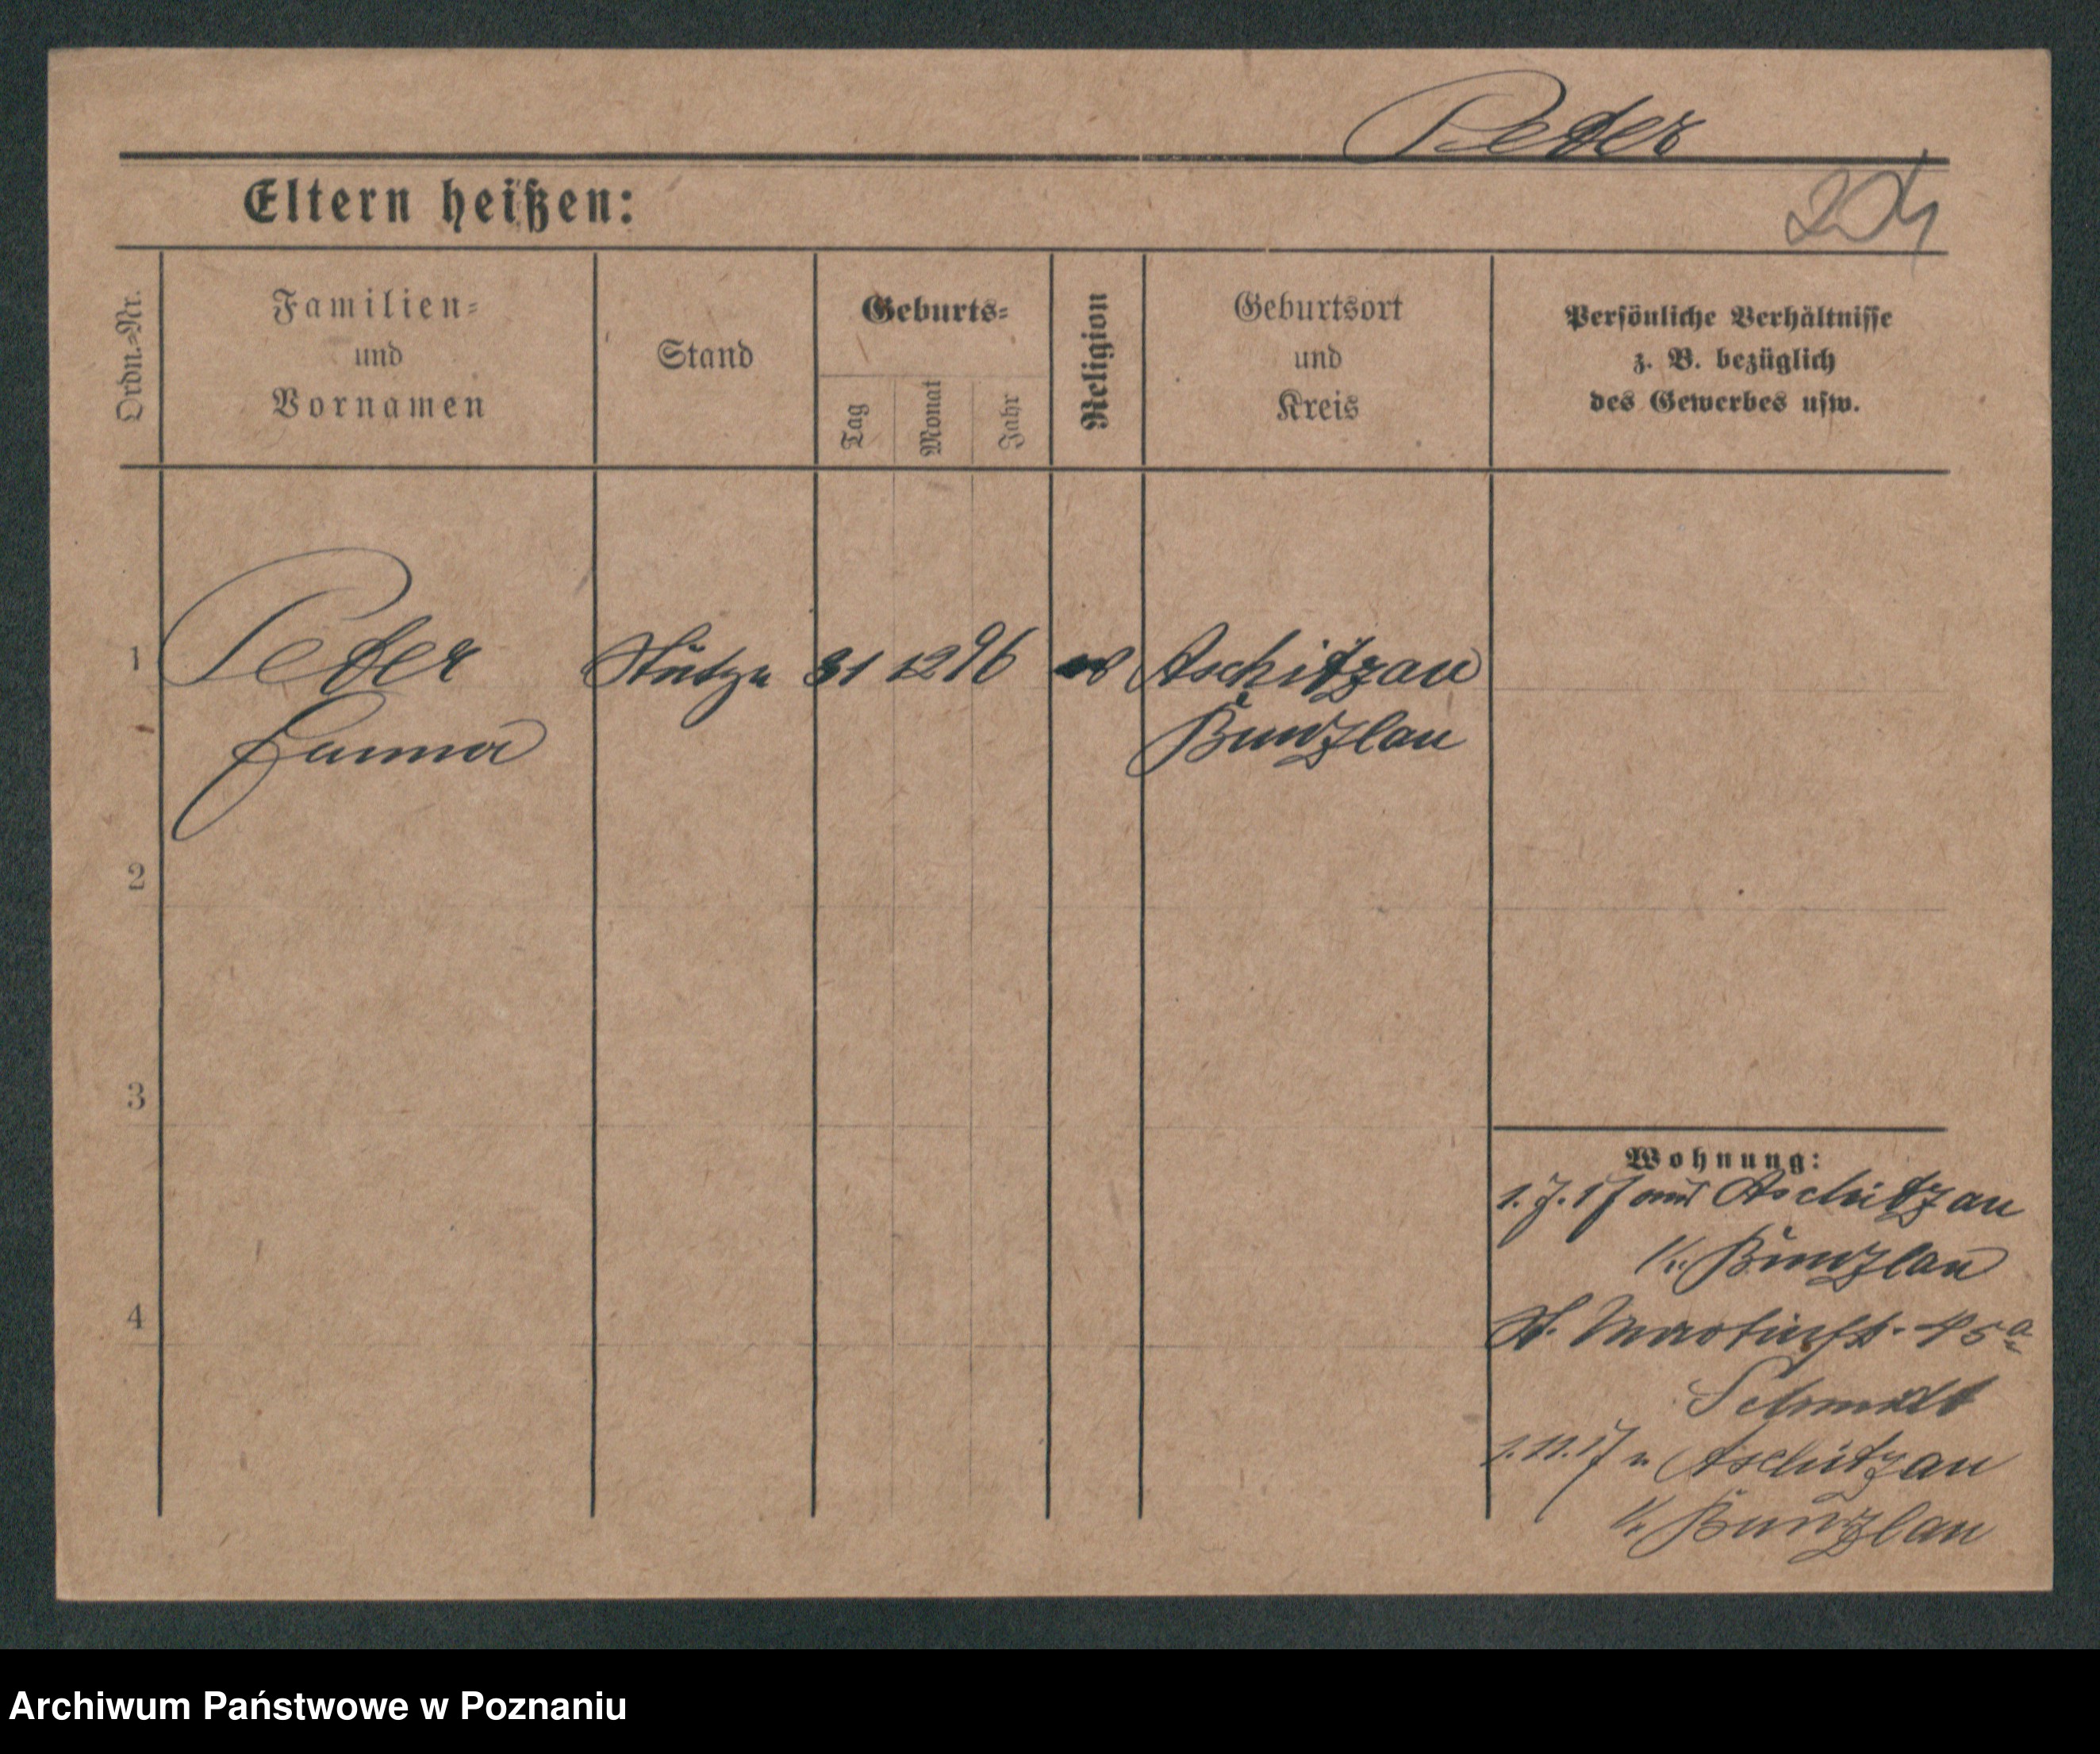 Peter
Eltern heißen:
Ordn.-Nr.
Familien-
und
Vornamen
Stand
Geburts-
Tag
Monat
Jahr
Religion
Geburtsort
und
Kreis
Persönliche Verhältnisse
z. B. bezüglich
des Gewerbes usw.
1 Peter Stütze 31 12 96 Aschitzau
Bunzlau
2
3
4
Wohnung:
1.7.17 aus Aschitzau
Kr. Bunzlau
St. Martinstr. 45a
Schmidt
1.11.17 n. Aschitzau
Kr. Bunzlau
Archiwum Państwowe w Poznaniu